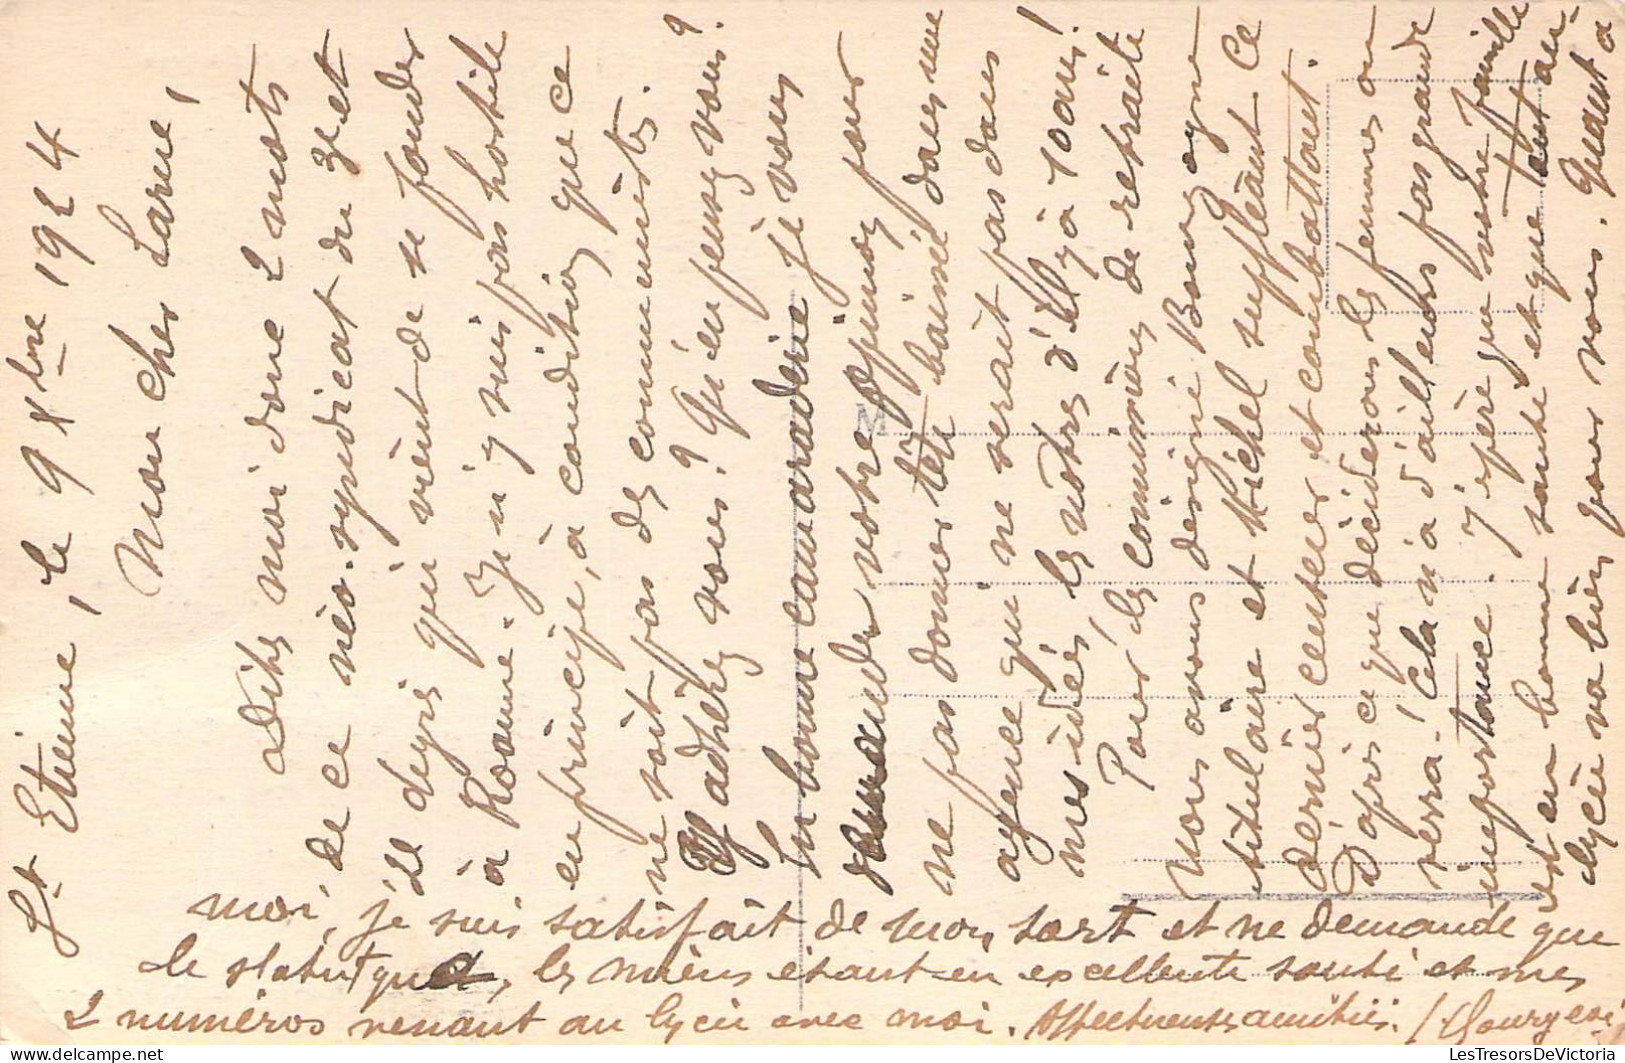 St Etienne, le 9 Xbre 1924
Mon cher Larue,
Dites moi donc 2 mots
de ce néo-syndicat du 3e et
2e degré qui vient de se fonder
à Roanne. Je n'y suis pas hostile
en principe, à condition que ce
ne soit pas des communistes.
Y adhérez vous? Qu'en pensez vous?
En bonne camaraderie je vous
demander votre opinion pour
ne pas donner tête baissée dans une
agence qui ne serait pas dans
mes idées, les vôtres d'il y a 10 ans!
Pour les commissions de retraite
nous avons désigné Bourgogne
titulaire et Michel suppléant. Ce
dernier censeur et combattant.
D'après ce que décideront les femmes on
verra. Cela n'a d'ailleurs pas grande
importance. J'espère que votre famille
est en bonne santé et que tout au
lycée va bien pour vous. Quant à
moi, je suis satisfait de mon sort et ne demande que
le statut quo, les miens étant en excellente santé et mes
2 numéros venant au lycée avec moi. Affectueuses amitiés.
M
www.delcampe.net
LesTresorsDeVictoria